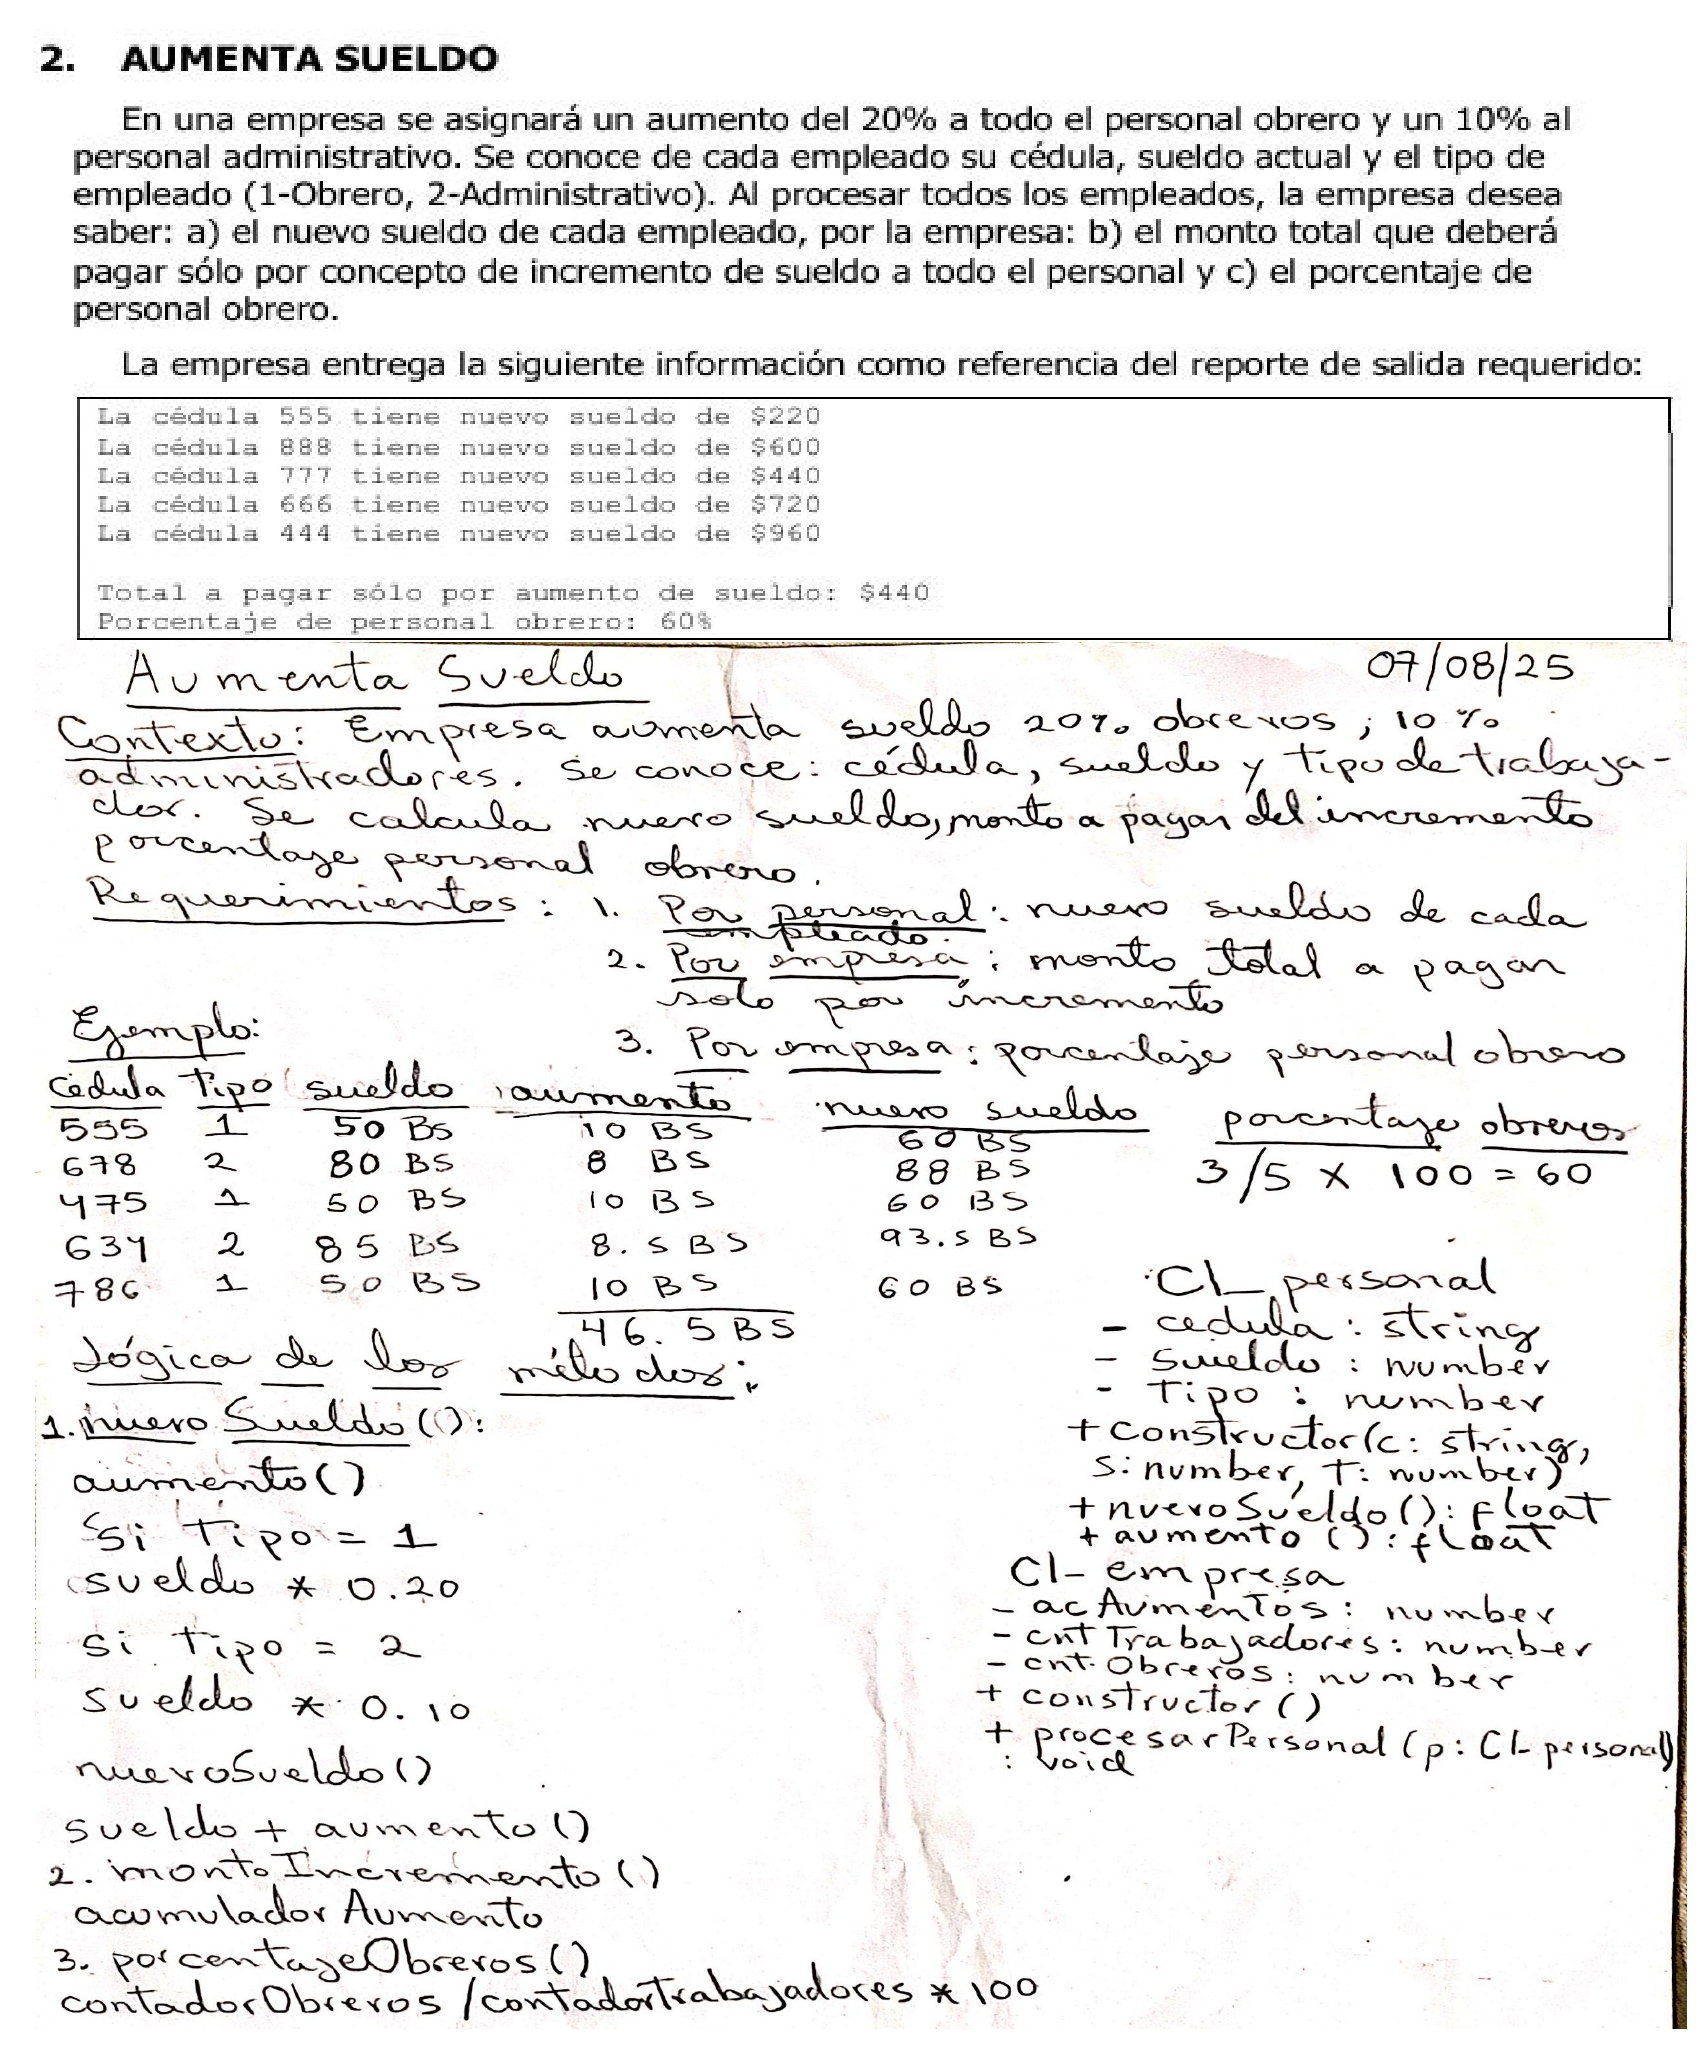 2. AUMENTA SUELDO
En una empresa se asignará un aumento del 20% a todo el personal obrero y un 10% al
personal administrativo. Se conoce de cada empleado su cédula, sueldo actual y el tipo de
empleado (1-Obrero, 2-Administrativo). Al procesar todos los empleados, la empresa desea
saber: a) el nuevo sueldo de cada empleado, por la empresa: b) el monto total que deberá
pagar sólo por concepto de incremento de sueldo a todo el personal y c) el porcentaje de
personal obrero.
La empresa entrega la siguiente información como referencia del reporte de salida requerido:
La cédula 555 tiene nuevo sueldo de $220
La cédula 888 tiene nuevo sueldo de $600
La cédula 777 tiene nuevo sueldo de $440
La cédula 666 tiene nuevo sueldo de $720
La cédula 444 tiene nuevo sueldo de $960
Total a pagar sólo por aumento de sueldo: $440
Porcentaje de personal obrero: 60%
Aumenta Sueldo 07/08/25
Contexto: Empresa aumenta sueldo 20% obreros, 10%
administradores. Se conoce: cédula, sueldo y tipo de trabaja-
dor. Se calcula nuevo sueldo, monto a pagar del incremento
porcentaje personal obrero.
Requerimientos: 1. Por personal: nuevo sueldo de cada
empleado.
2. Por empresa: monto total a pagar
solo por incremento
Ejemplo:
3. Por empresa: porcentaje personal obrero
Cédula Tipo sueldo aumento nuevo sueldo porcentaje obreros
555 1 50 BS 10 BS 60 BS 3/5 x 100 = 60
678 2 80 BS 8 BS 88 BS
475 1 50 BS 10 BS 60 BS
634 2 85 BS 8.5 BS 93.5 BS
786 1 50 BS 10 BS 60 BS
46.5 BS
Lógica de los métodos:
1. nuevo Sueldo():
aumento()
Si Tipo = 1
sueldo * 0.20
si tipo = 2
sueldo * 0.10
nuevoSueldo()
sueldo + aumento()
2. montoIncremento()
acumulador Aumento
3. porcentajeObreros()
contadorObreros / contadorTrabajadores * 100
Cl_personal
- cedula: string
- Sueldo: number
- Tipo: number
+ Constructor(c: string,
S: number, T: number)
+ nuevoSueldo(): float
+ aumento(): float
Cl_empresa
- acAumentos: number
- cntTrabajadores: number
- cntObreros: number
+ constructor()
+ procesarPersonal(p: Cl_personal)
: void